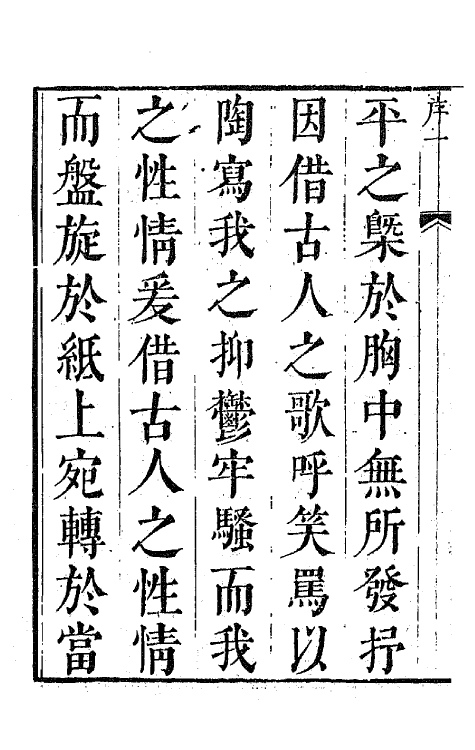 序一
平之槩於胸中無所發抒
因借古人之歌呼笑罵以
陶寫我之抑鬱牢騷而我
之性情爰借古人之性情
而盤旋於紙上宛轉於當